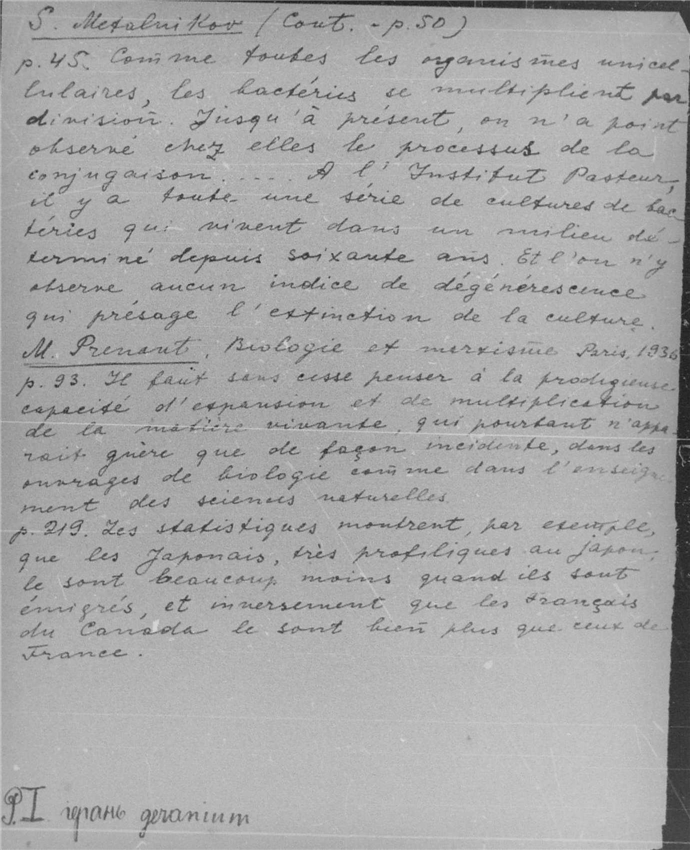 S. Metalnikov (Cont. - p.50)
p.45. Comme toutes les organismes unicel-
lulaires, les bactéries se multiplient par
division. Jusqu'à présent, on n'a point
observé chez elles le processus de la
conjugaison. .... A l'Institut Pasteur,
il y a toute une série de cultures de bac
téries qui vivent dans un milieu dé-
terminé depuis soixante ans. Et l'on n'y
observe aucun indice de dégénérescence
qui présage l'extinction de la culture.
M. Prenant, Biologie et marxisme Paris, 1936
p.93. Il faut sans cesse penser à la prodigieuse
capacité d'expansion et de multiplication
de la matière vivante, qui pourtant n'appa-
rait guère que de façon incidente, dans les
ouvrages de biologie comme dans l'enseigne
ment des sciences naturelles.
p.219. Les statistiques montrent, par exemple,
que les Japonais, très profiliques au Japon,
le sont beaucoup moins quand ils sont
émigrés, et inversement que les Français
du Canada le sont bien plus que ceux de
France.
P.I герань geranium